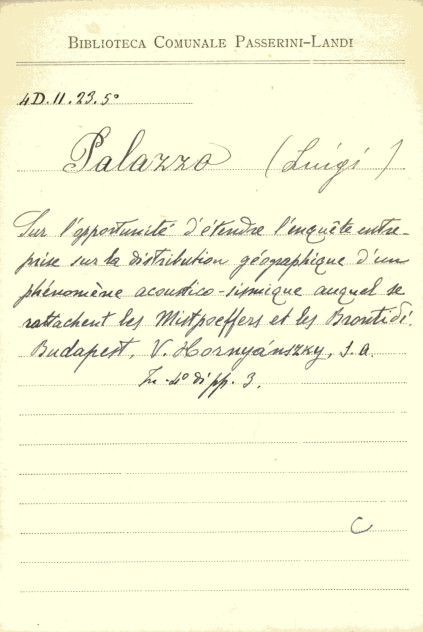 BIBLIOTECA COMUNALE PASSERINI-LANDI
4D.11.23.5°
Palazzo (Luigi)
Sur l'opportunité d'étendre l'enquête entre-
prise sur la distribution géographique d'un
phénomène acoustico-sismique auquel se
rattachent les Mistpoeffers et les Brontidi.
Budapest, V. Hornyánszky, s.a.
In-4° di pp. 3.
C